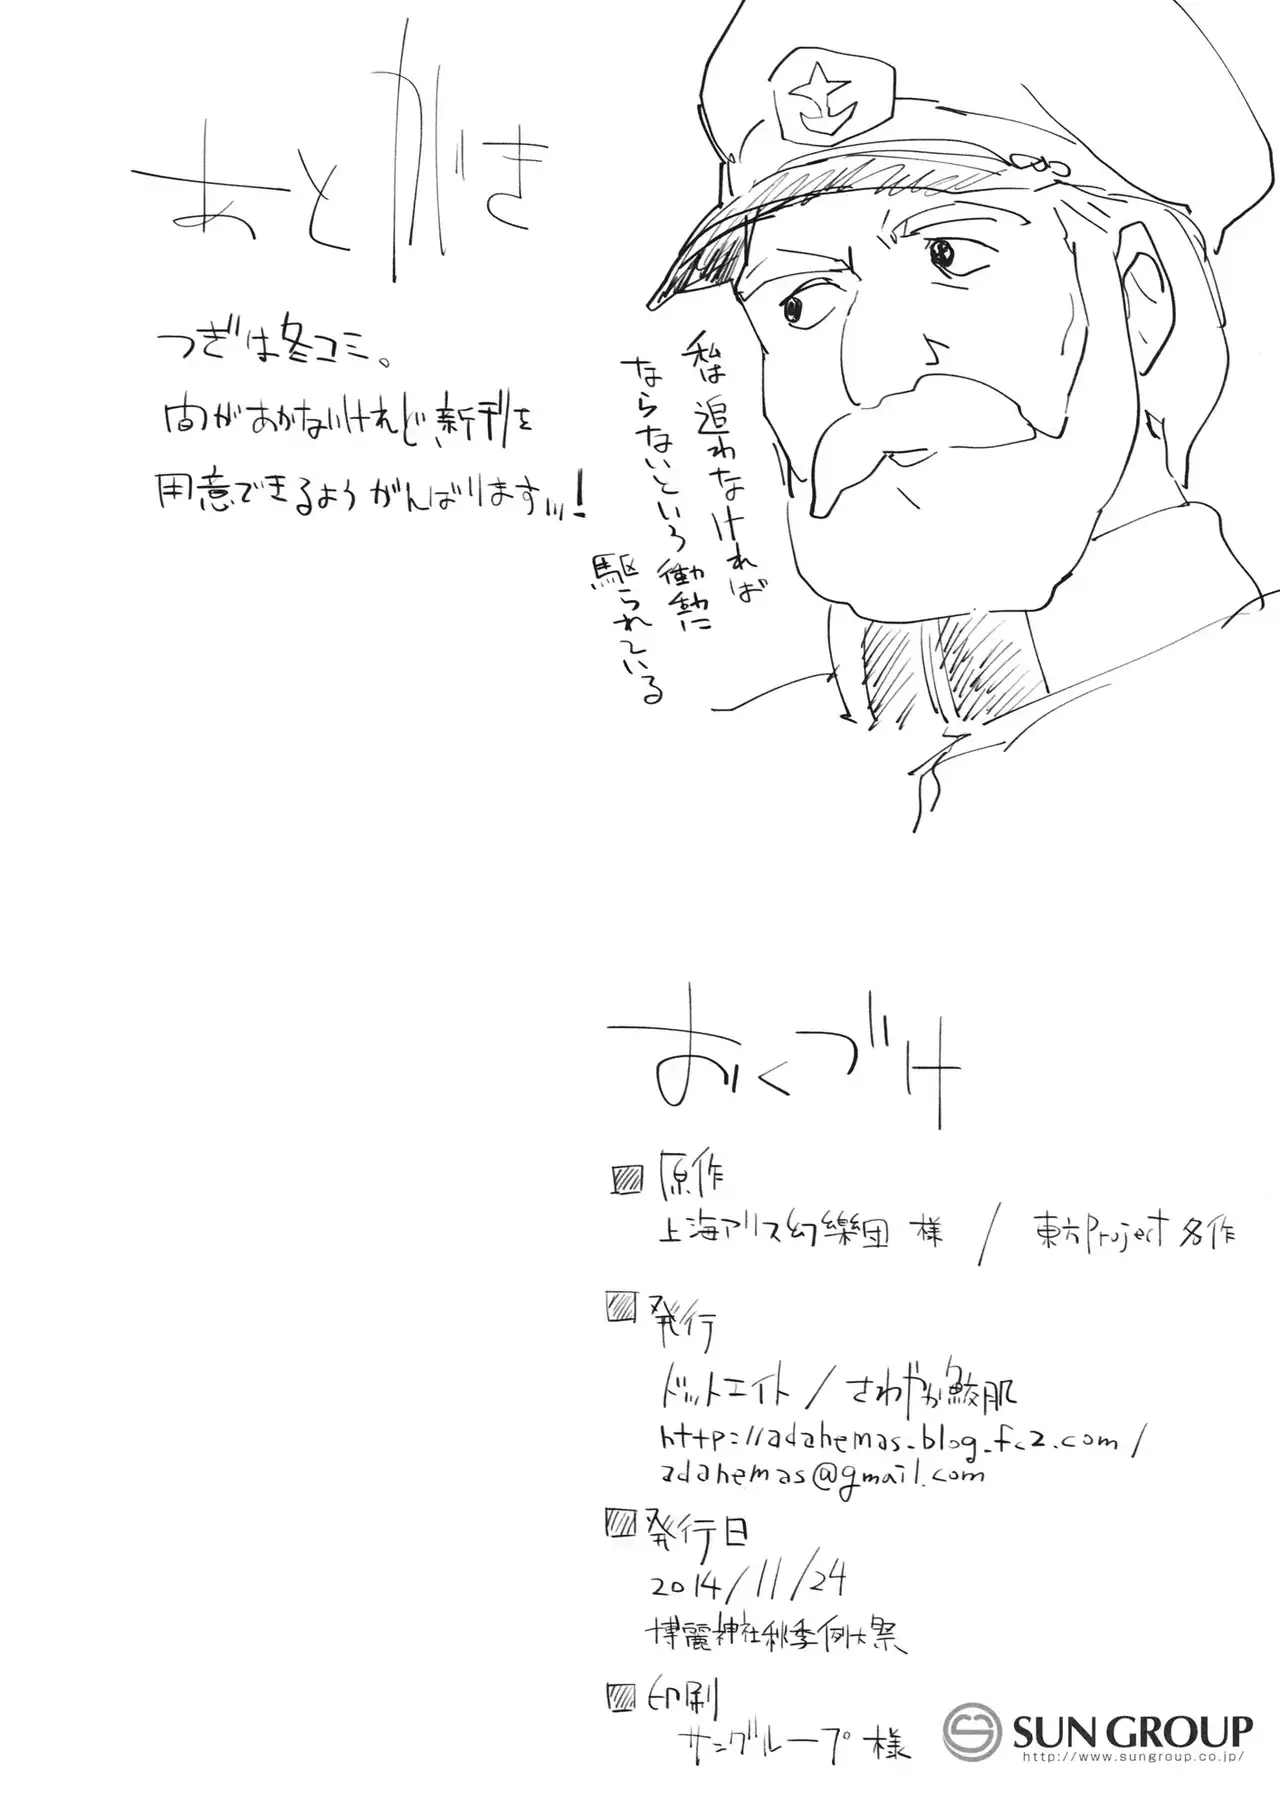 あとがき
つぎは冬コミ。
間があかないけれど、新刊を
用意できるようがんばります…!
私は追わなければ
ならないという衝動に
駆られている
おくづけ
原作
上海アリス幻樂団 様 / 東方Project 名作
発行
ドットエイト / さわやか鮫肌
http://adahemas.blog.fc2.com/
adahemas@gmail.com
発行日
2014/11/24
博麗神社秋季例大祭
印刷
サングループ 様
SUN GROUP
http://www.sungroup.co.jp/